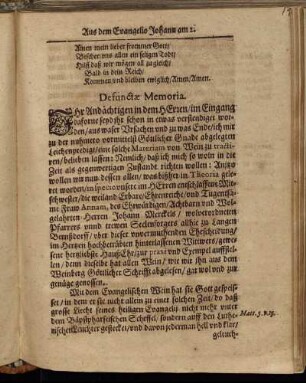 Aus dem Evangelio Johann am 2.
Amen mein lieber frommer Gott/
Bescher uns allen ein seligen Todt/
Hilff daß wir mögen all zugleich/
Bald in dein Reich/
Kommen und bleiben ewiglich/Amen/Amen.
Defunctæ Memoria.
IHr Andächtigen in dem HErren/im Eingang
seyd ihr schon in etwas verständiget wor-
den/aus waser Ursachen und zu was Ende/ich mit
zu der nunmehr vormittelst Göttlicher Gnade abgelegten
Leichenpredigt/eine solche Materiam von Wein zu tracti-
ren/belieben lassen: Nemlich/daß ich mich so wol in die
Zeit als gegenwertigen Zustande richten wollen: Anizo
wollen wir nun dessen alles/was bißhero in Theoria gele-
set worden/in unser im HErren entschlaffnen Mit-
schwester/die weiland Erbare/Ehrenreiche/und Tugendsa-
me Fraw Annam, des Ehrwürdigen/Achtbarn und Wol-
gelahrten Herren Johann Merckels/wolverordneten
Pfarrers und trewen Seelensorgers allhie zu Langen
Bernsdorff/uber dieser vornehmenden Ehescheidung/
im Herren hochbetrübten hinterlassenen Witwers/gewe-
sene herzliebste Hauß Ehr/zur praxi und Exempel auffstell-
en/denn dieselbe hat allen Wein/wie wir ihn aus dem
Weinberg Göttlicher Schrifft abgelesen/gar wol und zur
genüge genossen.
Mit dem Evangelischen Wein hat sie Gott gespeis-
set/in dem er sie nicht allein zu einer solchen Zeit/da das
grosse Liecht seines heiligen Evangelij nicht mehr unter
dem Bäpstpharisischen Scheffel/sondern auff den Luthe-
rischen Leuchter gestecket/und davon jederman hell und klar/
Matt. 5. v. 15.
geleuch-